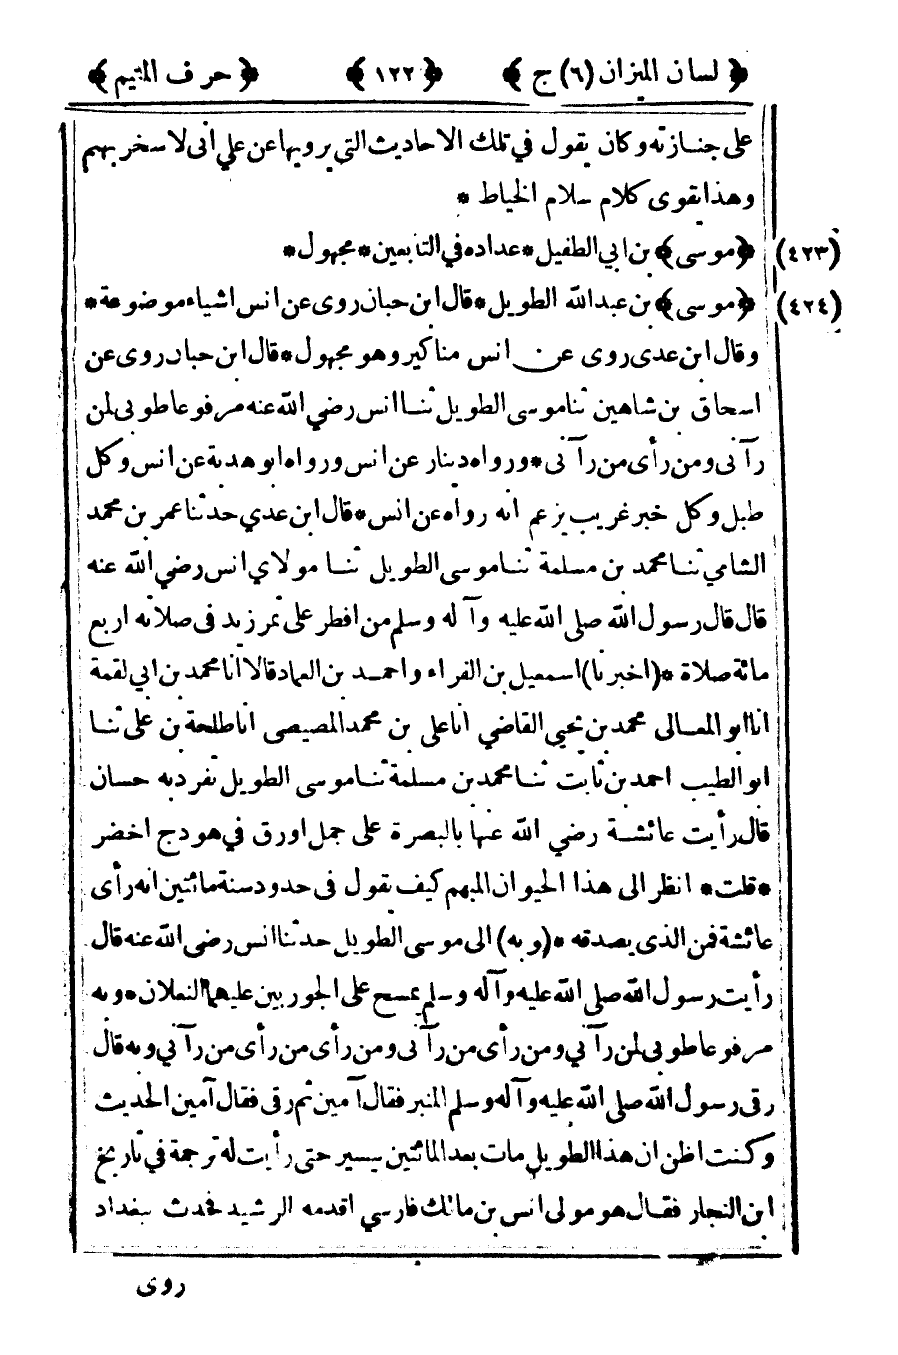 ﴿ لسان الميزان (٦) ج ﴾ ﴿ ١٢٢ ﴾ ﴿ حرف الميم ﴾
على جنازته وكان يقول في تلك الاحاديث التي يرويها عن علي انى لا سخر بهم
وهذا يقوى كلام سلام الخياط *
(٤٢٣) ﴿موسى﴾ بن ابي الطفيل * عداده في التابعين * مجهول *
(٤٢٤) ﴿موسى﴾ بن عبد الله الطويل * قال ابن حبان روى عن انس اشياء موضوعة *
وقال ابن عدى روى عن انس مناكير وهو مجهول * قال ابن حبان روى عن
اسحاق بن شاهين ثنا موسى الطويل ثنا انس رضي الله عنه مرفوعا طوبى لمن
رآنى ومن رأى من رآنى * ورواه دينار عن انس ورواه ابو هدبة عن انس وكل
طبل وكل خبر غريب يزعم انه رواه عن انس * قال ابن عدي حدثنا عمر بن محمد
الشامي ثنا محمد بن مسلمة ثنا موسى الطويل ثنا مولاي انس رضي الله عنه
قال قال رسول الله صلى الله عليه وآله وسلم من افطر على تمر زيد فى صلاته اربع
مائة صلاة * (اخبرنا) اسمعيل بن الفراء واحمد بن العماد قالا انا محمد بن ابي لقمة
انا ابو المعالى محمد بن يحيى القاضي انا على بن محمد المصيصى انا طلحة بن على ثنا
ابو الطيب احمد بن ثابت ثنا محمد بن مسلمة ثنا موسى الطويل تفرد به حسان
قال رأيت عائشة رضي الله عنها بالبصرة على جمل اورق في هودج اخضر
* قلت * انظر الى هذا الحيوان المبهم كيف يقول فى حدود سنة مائتين انه رأى
عائشة فمن الذى يصدقه * (وبه) الى موسى الطويل حدثنا انس رضى الله عنه قال
رأيت رسول الله صلى الله عليه وآله وسلم يمسح على الجوربين عليهما النعلان * وبه
مرفوعا طوبى لمن رآني ومن رأى من رآنى ومن رأى من رأى من رآني وبه قال
رقى رسول الله صلى الله عليه وآله وسلم المنبر فقال آمين ثم رقى فقال آمين الحديث
وكنت اظن ان هذا الطويل مات بعد المائتين بيسير حتى رأيت له ترجمة في تاريخ
ابن النجار فقال هو مولى انس بن مالك فارسي اقدمه الرشيد فحدث ببغداد
روى